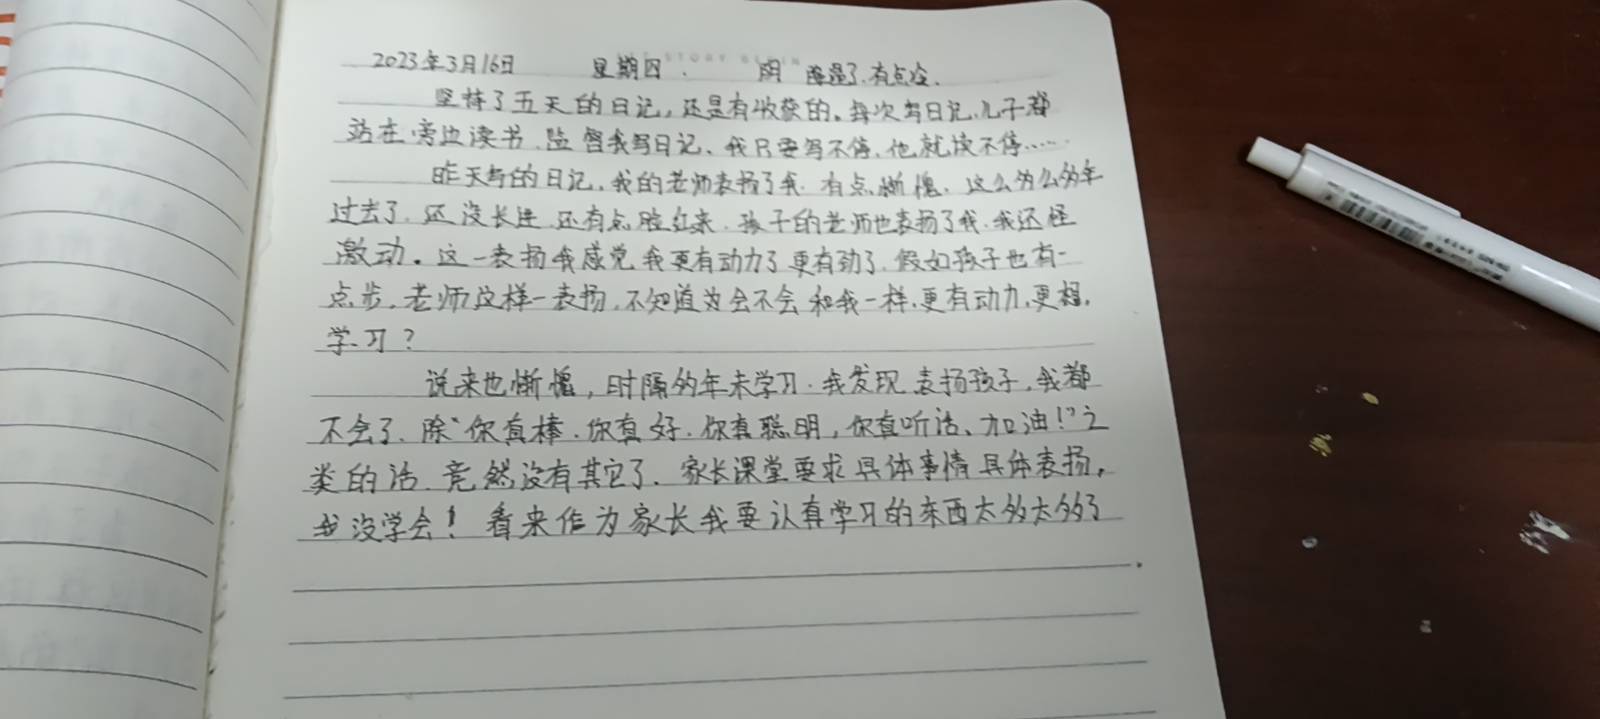 2023年3月16日 星期四. 阴 降温了.有点冷.
坚持了五天的日记,还是有收获的。每次写日记,儿子都
站在旁边读书.监督我写日记、我只要写不停.他就读不停……
昨天写的日记.我的老师表扬了我.有点惭愧.这么多么多年
过去了.还没长进.还有点脸红来.孩子的老师也表扬了我.我还怪
激动。这一表扬我感觉我更有动力了更有劲了.假如孩子也有一
点步.老师这样一表扬.不知道为会不会和我一样.更有动力.更想.
学习?
说来也惭愧,时隔多年未学习.我发现表扬孩子.我都
不会了.除“你真棒.你真好.你真聪明,你真听话、加油!”之
类的话.竟然没有其它了.家长课堂要求具体事情具体表扬,
我没学会!看来作为家长我要认真学习的东西太多太多了